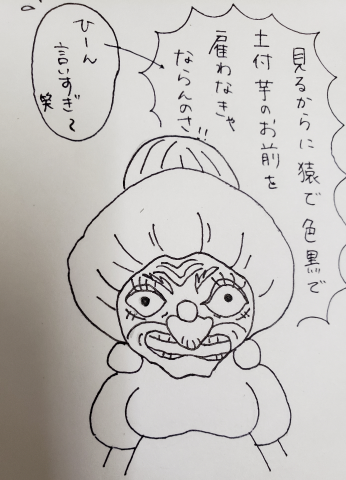 見るからに猿で色黒で
土付芋のお前を
雇わなきゃ
ならんのさ!!
ひーん
言いすぎ〜
笑